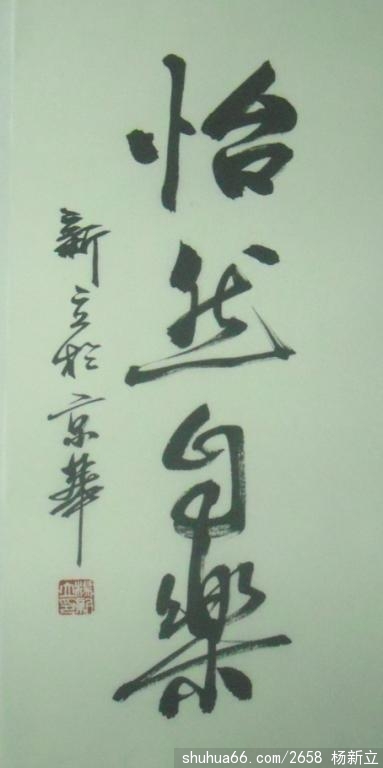 怡然自樂
新立於京華
楊新立印
shuhua66.com/2658 杨新立